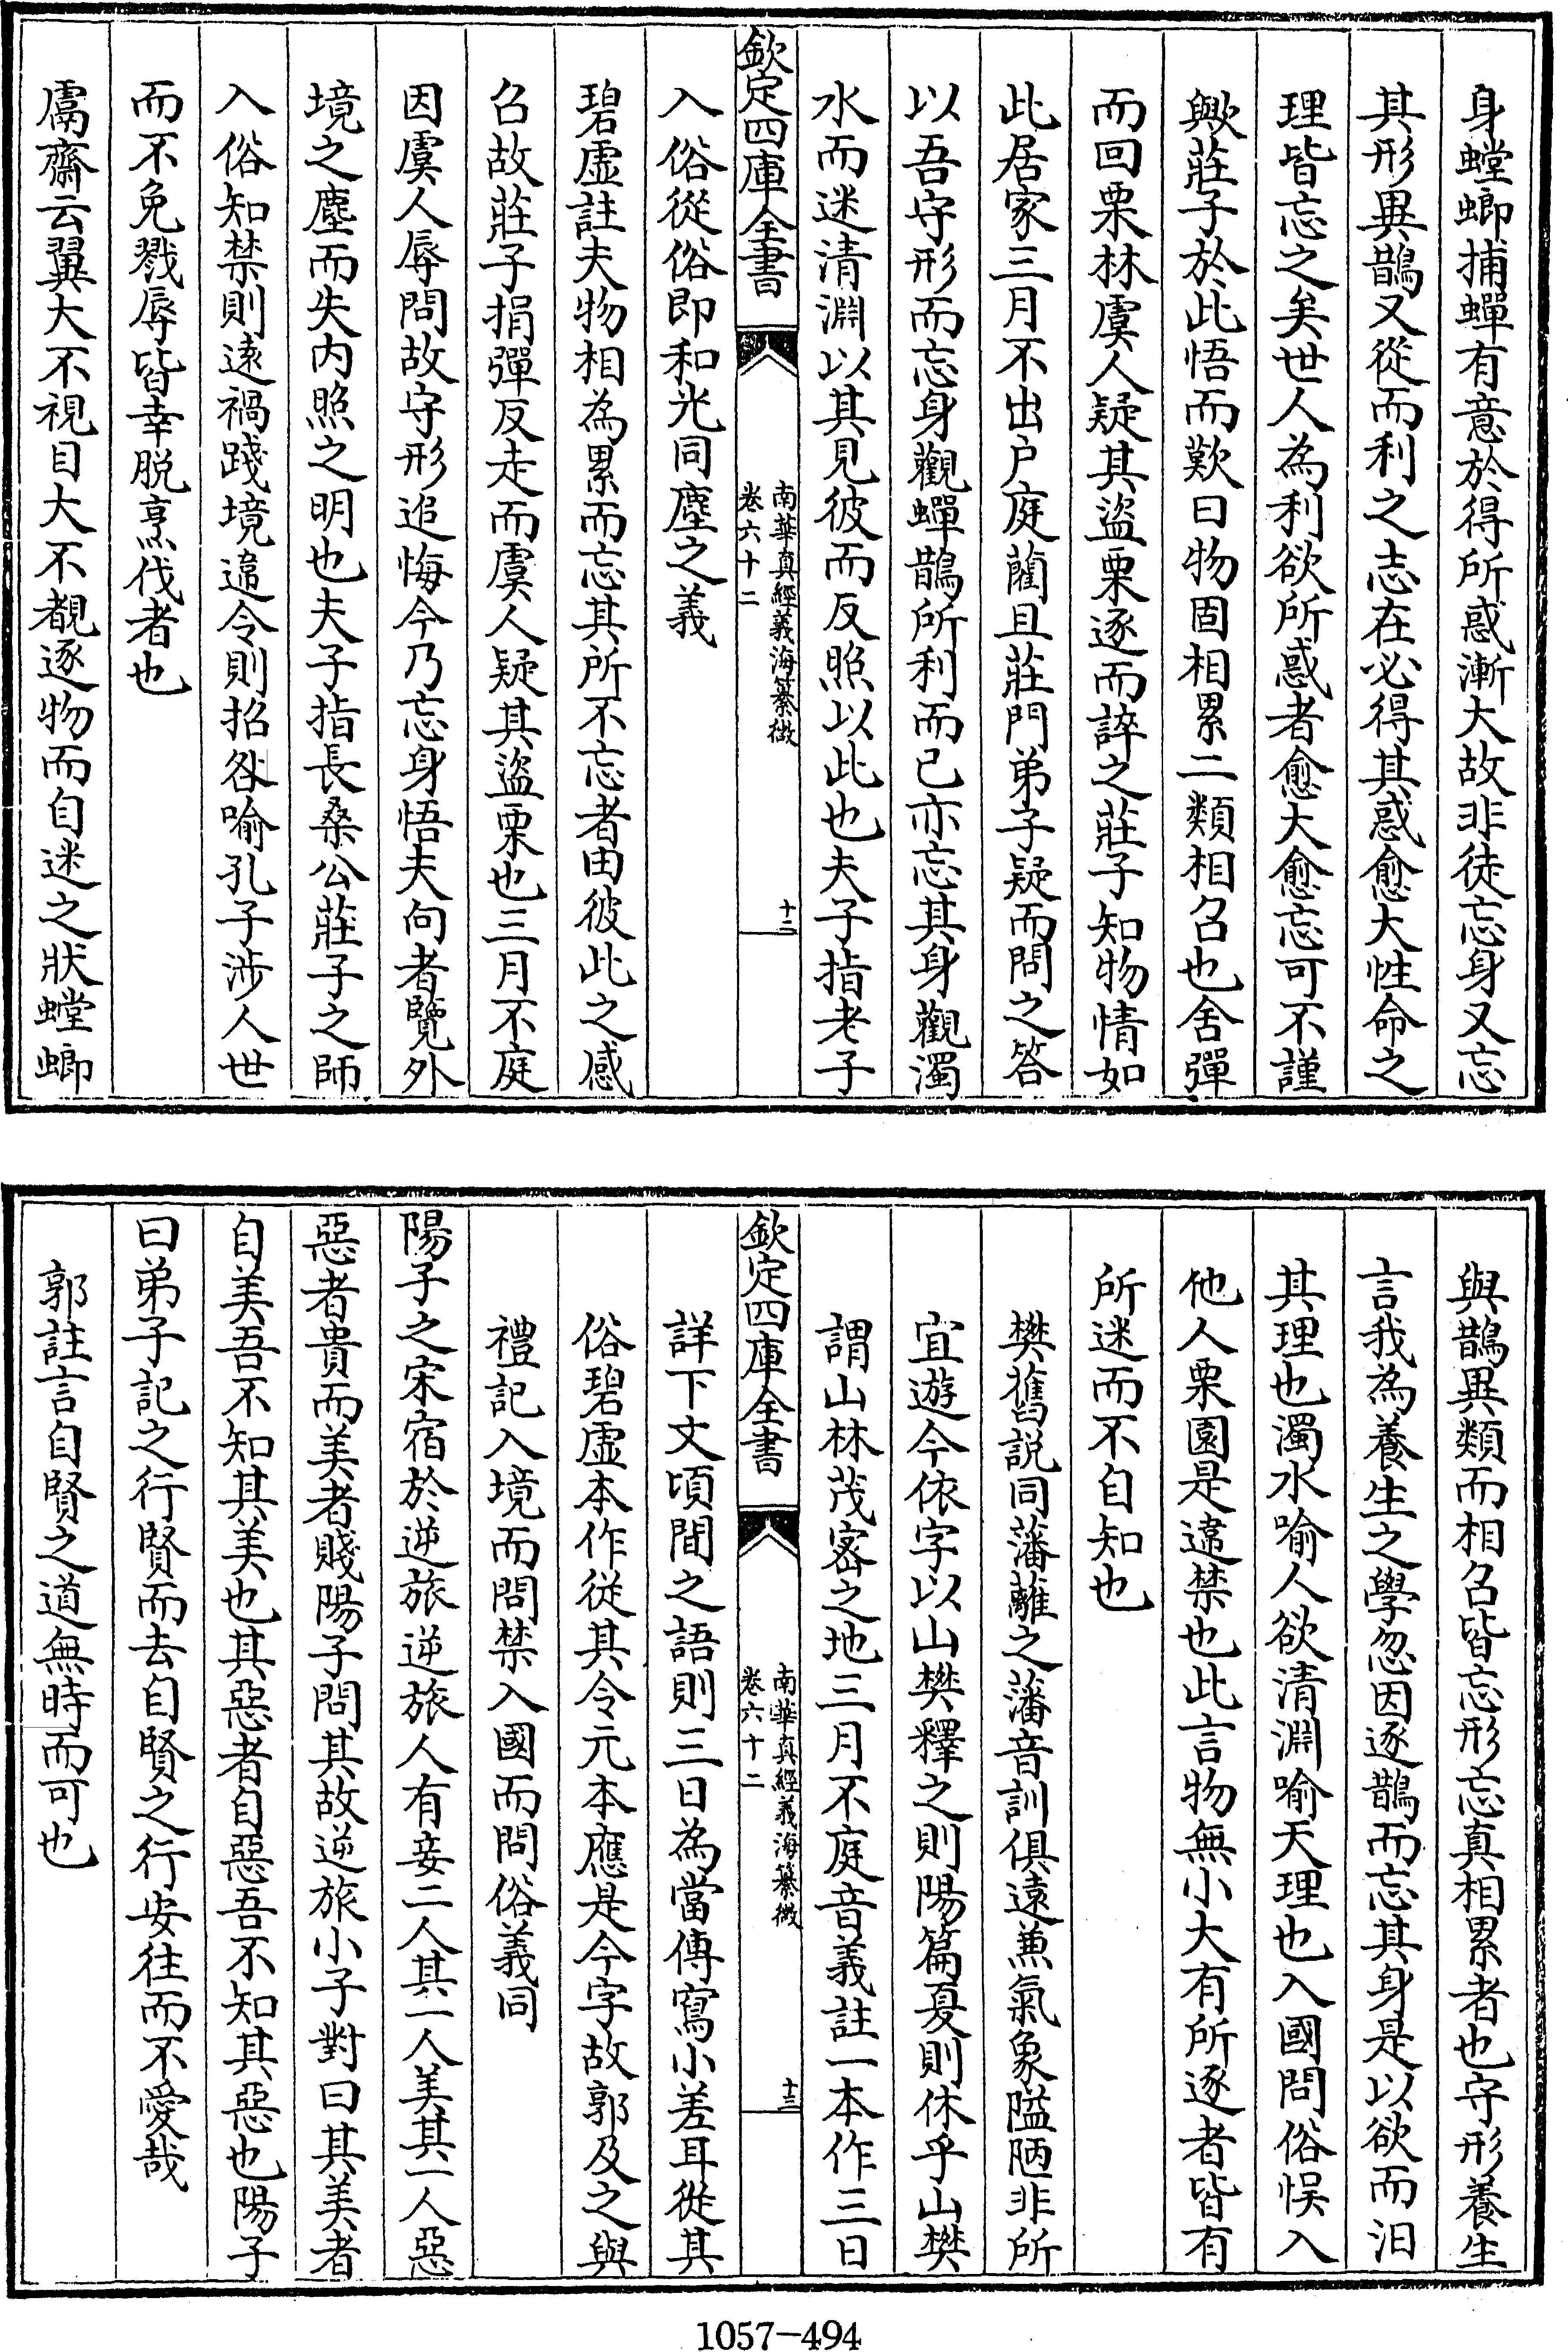 身螳蜋捕蟬有意於得所惑漸大故非徒忘身又忘
其形異鵲又從而利之志在必得其惑愈大性命之
理皆忘之矣世人為利欲所惑者愈大愈忘可不謹
歟莊子於此悟而歎曰物固相累二類相召也舍彈
而回栗林虞人疑其盜栗逐而誶之莊子知物情如
此居家三月不出户庭藺且莊門弟子疑而問之答
以吾守形而忘身觀蟬鵲所利而已亦忘其身觀濁
水而迷清淵以其見彼而反照以此也夫子指老子
欽定四庫全書
南華真經義海纂微
卷六十二
十二
入俗從俗即和光同塵之義
碧虚註夫物相為累而忘其所不忘者由彼此之感
召故莊子捐彈反走而虞人疑其盜栗也三月不庭
因虞人辱問故守形追悔今乃忘身悟夫向者覽外
境之塵而失内照之明也夫子指長桑公莊子之師
入俗知禁則逺禍踐境違令則招咎喻孔子涉人世
而不免戮辱皆幸脱烹伐者也
鬳齋云翼大不視目大不覩逐物而自迷之狀螳蜋
與鵲異類而相召皆忘形忘真相累者也守形養生
言我為養生之學忽因逐鵲而忘其身是以欲而汩
其理也濁水喻人欲清淵喻天理也入國問俗悞入
他人栗園是違禁也此言物無小大有所逐者皆有
所迷而不自知也
樊舊説同藩蘺之藩音訓俱逺兼氣象隘陋非所
宜遊今依字以山樊釋之則陽篇夏則休乎山樊
謂山林茂宻之地三月不庭音義註一本作三日
欽定四庫全書
南華真經義海纂微
卷六十二
十三
詳下文頃間之語則三日為當傳寫小差耳從其
俗碧虚本作從其令元本應是令字故郭及之與
禮記入境而問禁入國而問俗義同
陽子之宋宿於逆旅逆旅人有妾二人其一人美其一人惡
惡者貴而美者賤陽子問其故逆旅小子對曰其美者
自美吾不知其美也其惡者自惡吾不知其惡也陽子
曰弟子記之行賢而去自賢之行安往而不愛哉
郭註言自賢之道無時而可也
1057-494